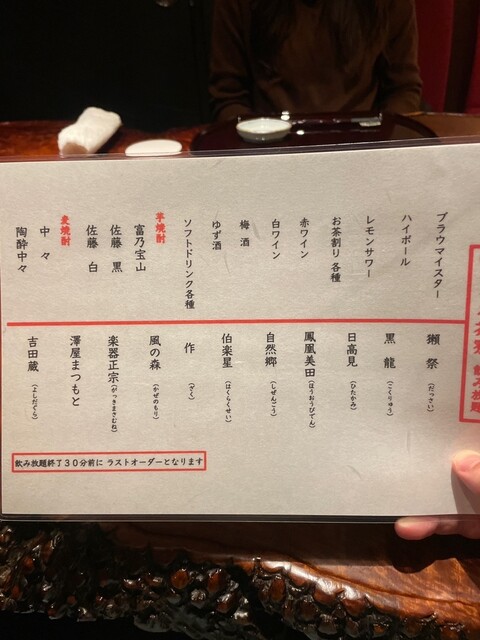 飲み放題
ブラウマイスター
ハイボール
レモンサワー
お茶割り 各種
赤ワイン
白ワイン
梅 酒
ゆず酒
ソフトドリンク各種
芋焼酎
富乃宝山
佐藤 黒
佐藤 白
麦焼酎
中 々
陶酔中々
獺 祭 (だっさい)
黒 龍 (こくりゅう)
日高見 (ひたかみ)
鳳凰美田 (ほうおうびでん)
自然郷 (しぜんごう)
伯楽星 (はくらくせい)
作 (ざく)
風の森 (かぜのもり)
楽器正宗 (がっきまさむね)
澤屋まつもと
吉田蔵 (よしだぐら)
飲み放題終了30分前に ラストオーダーとなります